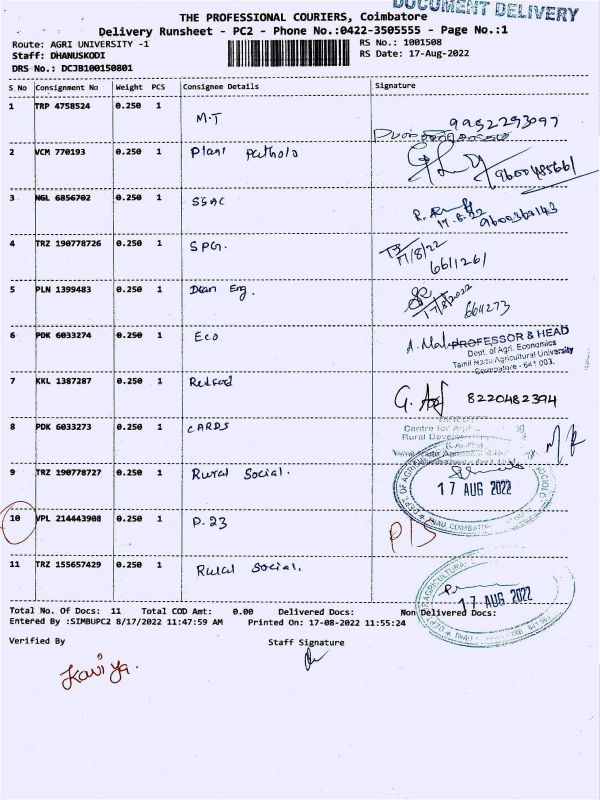 DOCUMENT DELIVERY
THE PROFESSIONAL COURIERS, Coimbatore
Delivery Runsheet - PC2 - Phone No.:0422-3505555 - Page No.:1
Route: AGRI UNIVERSITY -1 RS No.: 1001508
Staff: DHANUSKODI RS Date: 17-Aug-2022
DRS No.: DCJB100150801
S No Consignment No Weight PCS Consignee Details Signature
1 TRP 4758524 0.250 1 M.T 9952293097
2 VCM 770193 0.250 1 Plant Patholo 9600485661
3 NGL 6856702 0.250 1 SSAC 17.8.22 9600360143
4 TRZ 190778726 0.250 1 SPG. 17/8/22
6611261
5 PLN 1399483 0.250 1 Dean Eng. 17/8/2022 6611273
6 PDK 6033274 0.250 1 Eco PROFESSOR & HEAD
Dept. of Agrl. Economics
Tamil Nadu Agricultural University
Coimbatore - 641 003.
7 KKL 1387287 0.250 1 Redgod 8220482394
8 PDK 6033273 0.250 1 CARDS
Centre for
Rural
Tamil Nadu
9 TRZ 190778727 0.250 1 Rural Social. 17 AUG 2022
10 VPL 214443908 0.250 1 P.23 P/S
TNAU COIMBATORE
11 TRZ 155657429 0.250 1 Rural Social. 17 AUG 2022
Total No. Of Docs: 11 Total COD Amt: 0.00 Delivered Docs: Non Delivered Docs:
Entered By :SIMBUPC2 8/17/2022 11:47:59 AM Printed On: 17-08-2022 11:55:24
Verified By Staff Signature
Kaviya.